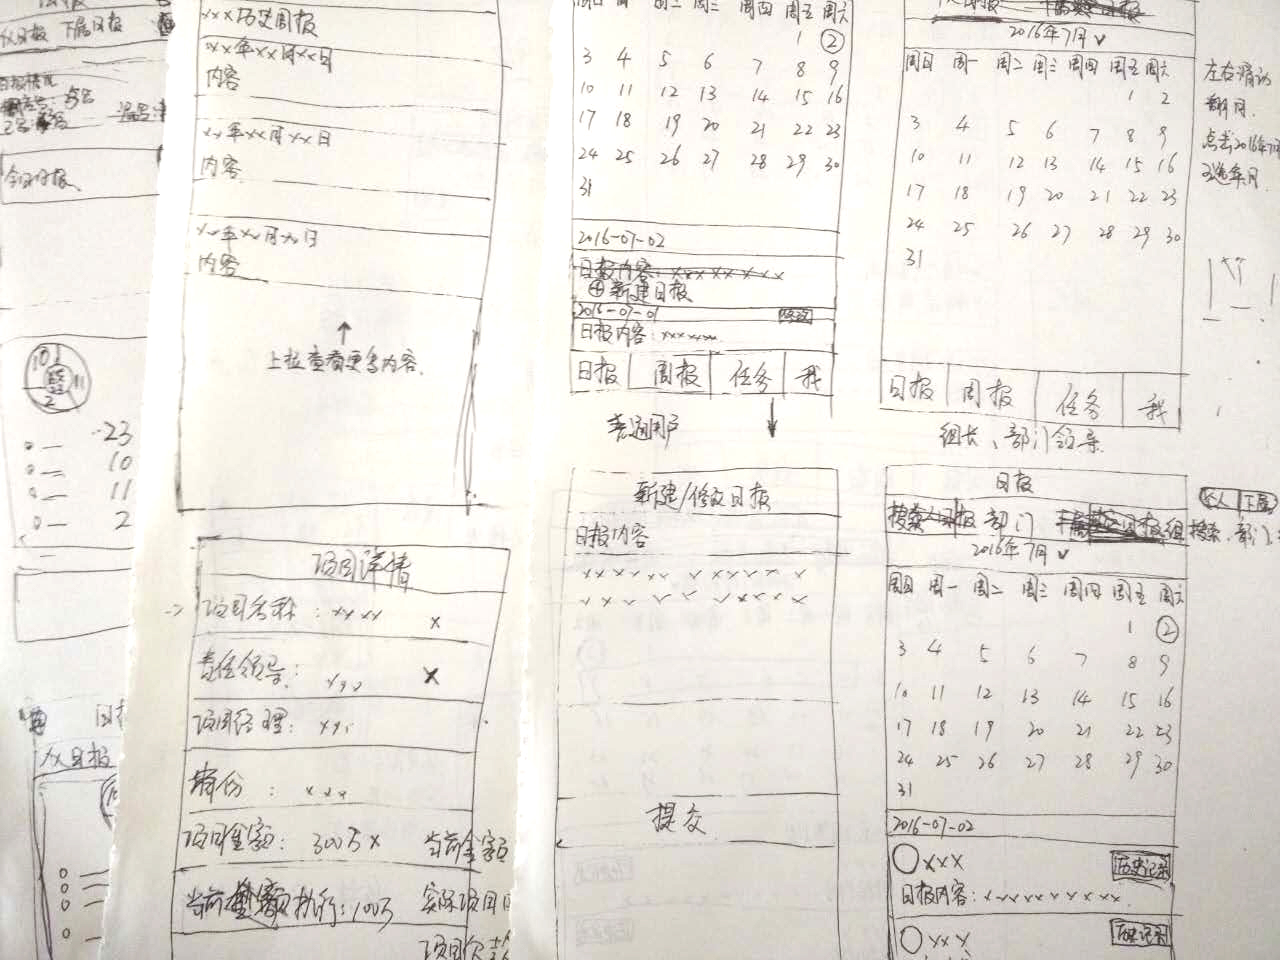 下属日报
今日日报
10
11
2
23
10
11
2
日报
xxx历史周报
xx年xx月xx日
内容
xx年xx月xx日
内容
xx年xx月xx日
内容
上拉查看更多内容.
项目详情
项目名称：xxxx x
责任领导：xxx x
项目经理：xxx
省份：xxx
项目金额：300万x 当前金额
当前 执行：100万 实际项目
项目欠款
周日 周一 周二 周三 周四 周五 周六
1 2
3 4 5 6 7 8 9
10 11 12 13 14 15 16
17 18 19 20 21 22 23
24 25 26 27 28 29 30
31
2016-07-02
日报内容：xxx xx xx
+新建日报
2016-07-01 修改
日报内容：xxxxxx
日报 周报 任务 我
普通用户
新建/修改日报
日报内容
xxxxxx xxxxxx
提交
2016年7月 ∨
周日 周一 周二 周三 周四 周五 周六
1 2
3 4 5 6 7 8 9
10 11 12 13 14 15 16
17 18 19 20 21 22 23
24 25 26 27 28 29 30
31
日报 周报 任务 我
组长、部门领导
左右滑动
翻月.
点击2016年7月
可选年月
日报
搜索 部门 组
个人 下属
搜索、部门、
2016年7月 ∨
周日 周一 周二 周三 周四 周五 周六
1 2
3 4 5 6 7 8 9
10 11 12 13 14 15 16
17 18 19 20 21 22 23
24 25 26 27 28 29 30
31
2016-07-02
xxx 历史记录
日报内容：xxxxxxxxx
xxx 历史记录